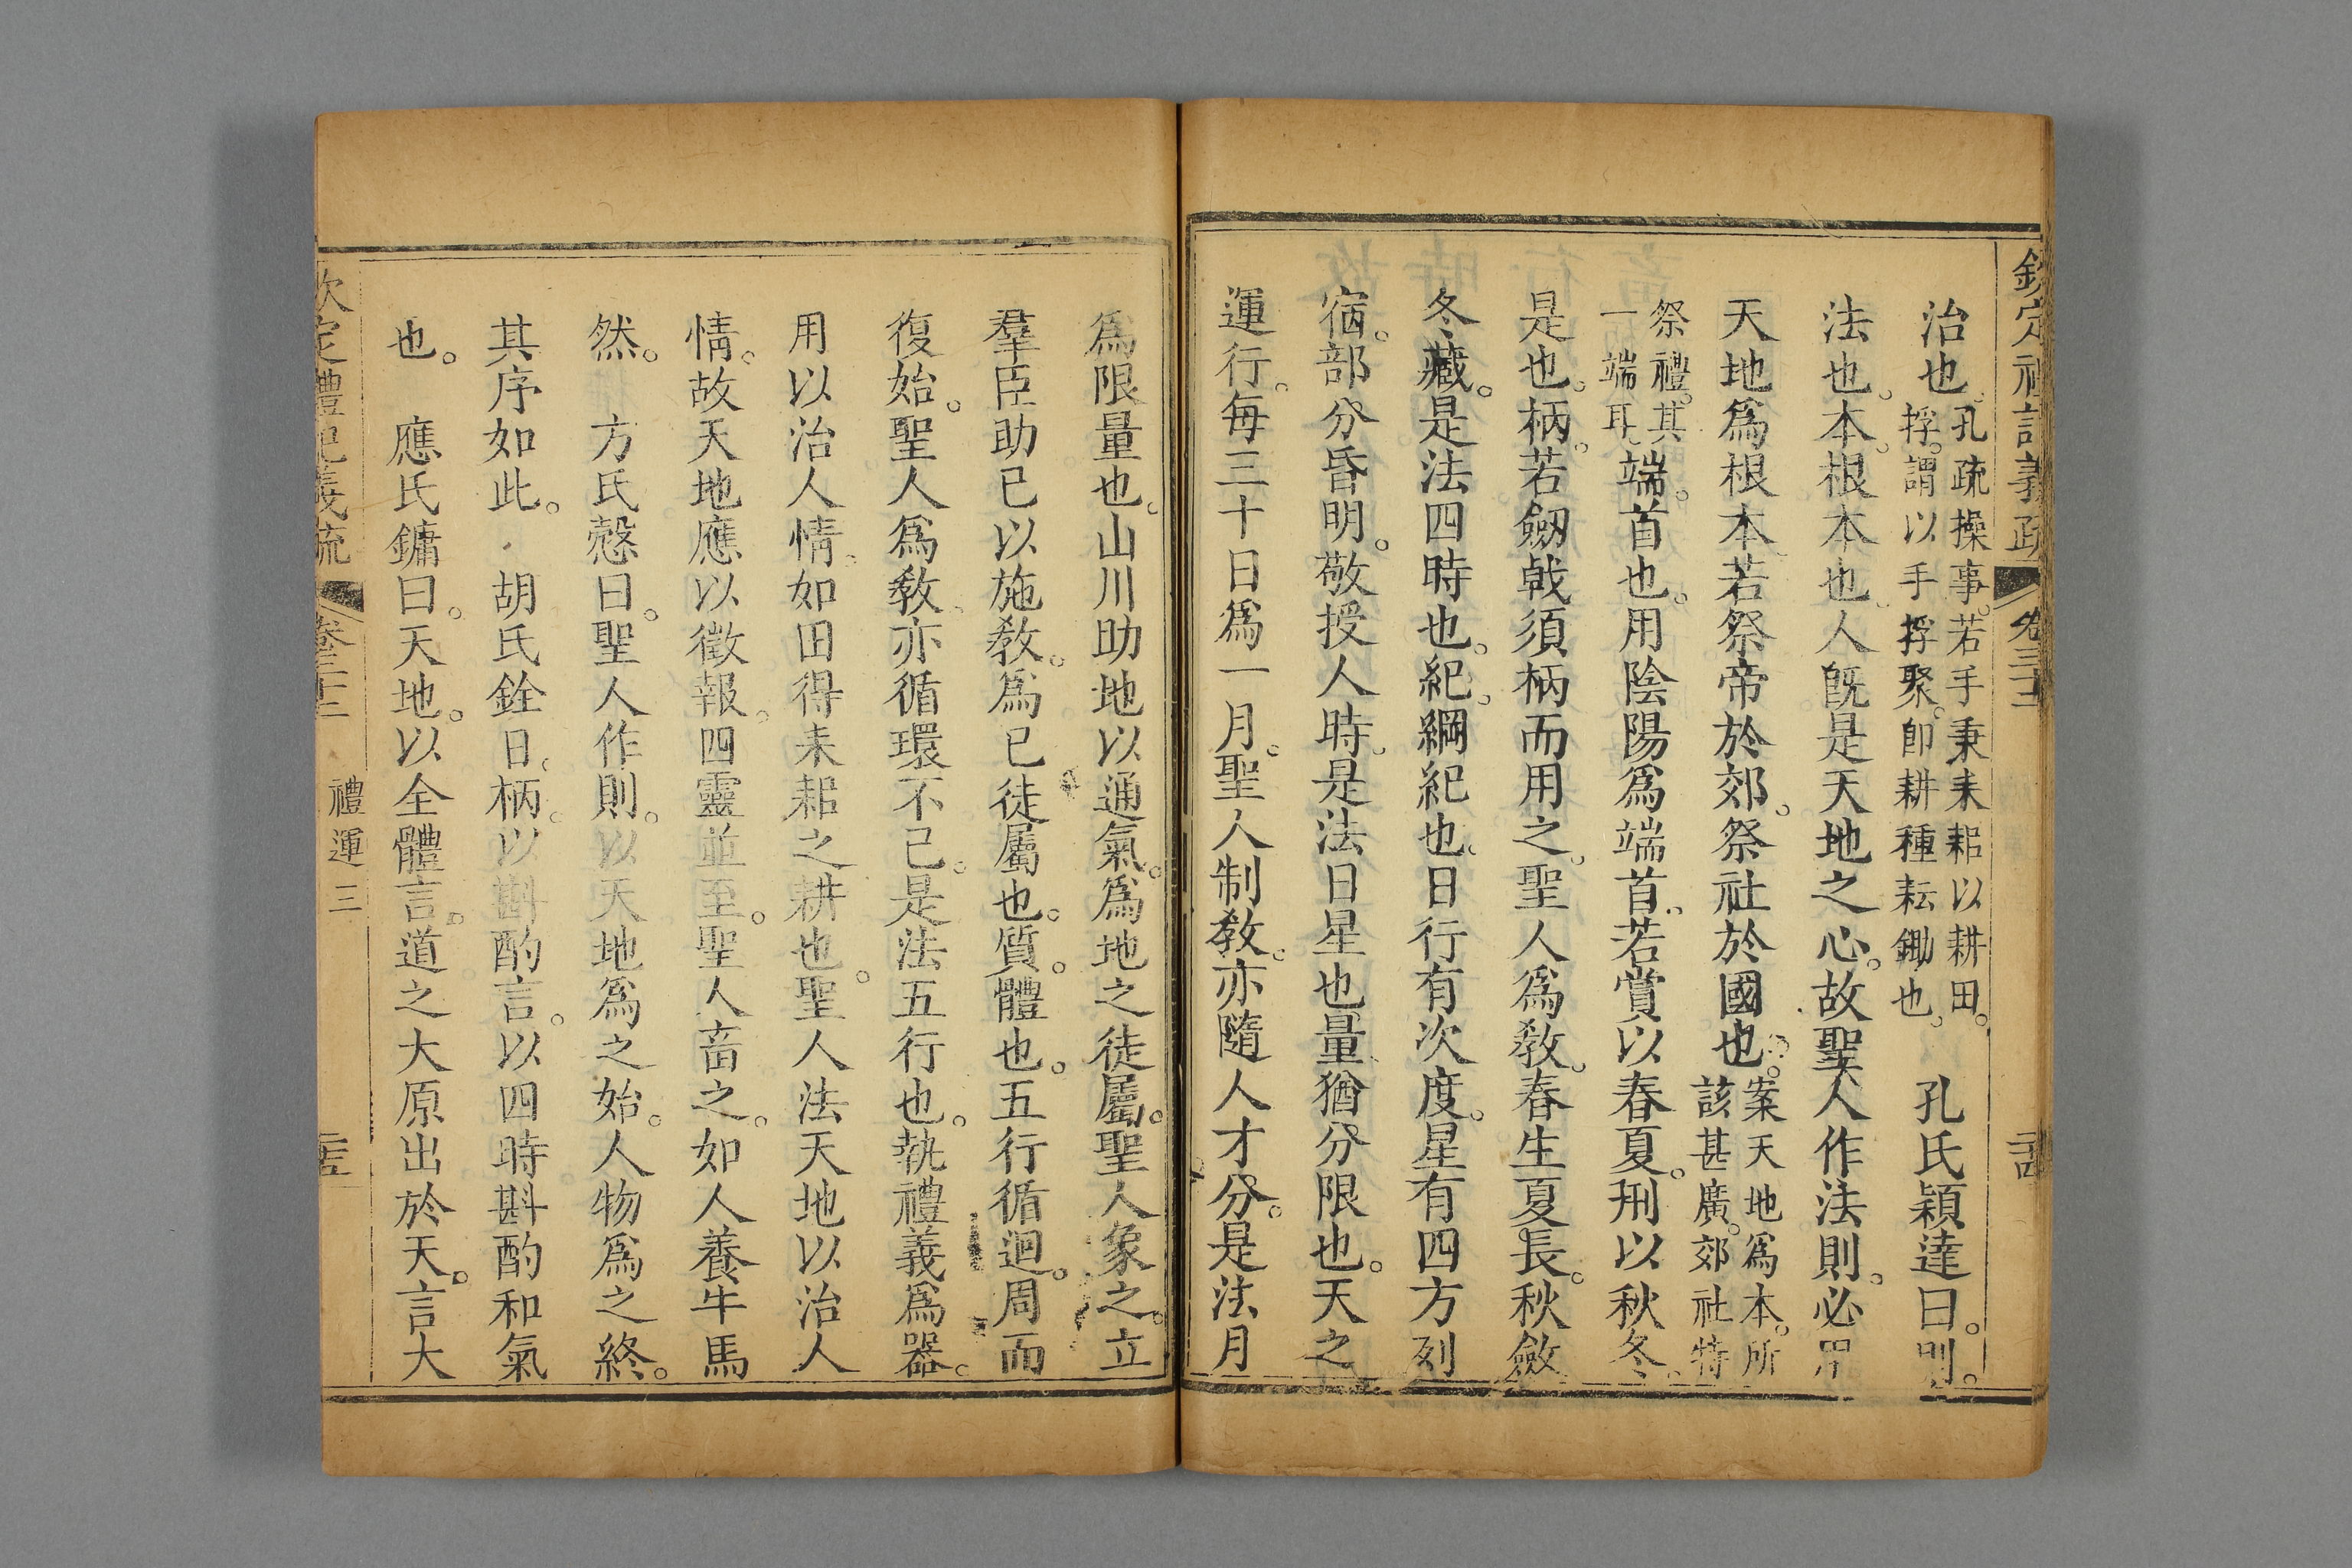 欽定禮記義疏 卷三十二
治也。孔疏操事。若手秉耒耜以耕田。捊。謂以手捊聚。卽耕種耘鋤也。 孔氏穎達曰。則。
法也。本。根本也。人旣是天地之心。故聖人作法則。必用
天地爲根本。若祭帝於郊。祭社於國也。案天地爲本。所該甚廣。郊社特
祭禮。其一端耳。端。首也。用陰陽爲端首。若賞以春夏。刑以秋冬。
是也。柄。若劒戟須柄而用之。聖人爲敎。春生夏長。秋斂
冬藏。是法四時也。紀。綱紀也。日行有次度。星有四方列
宿。部分昏明。敬授人時。是法日星也。量猶分限也。天之
運行。每三十日爲一月。聖人制敎。亦隨人才分。是法月
爲限量也。山川助地以通氣。爲地之徒屬。聖人象之。立
羣臣助已以施敎。爲已徒屬也。質。體也。五行循迴。周而
復始。聖人爲敎。亦循環不已。是法五行也。執禮義爲器。
用以治人情。如田得耒耜之耕也。聖人法天地以治人
情。故天地應以徵報。四靈並至。聖人畜之。如人養牛馬
然。 方氏慤曰。聖人作則。以天地爲之始。人物爲之終。
其序如此。 胡氏銓曰。柄。以斟酌言。以四時斟酌和氣
也。 應氏鏞曰。天地。以全體言。道之大原出於天。言大
欽定禮記義疏 卷三十二 禮運三